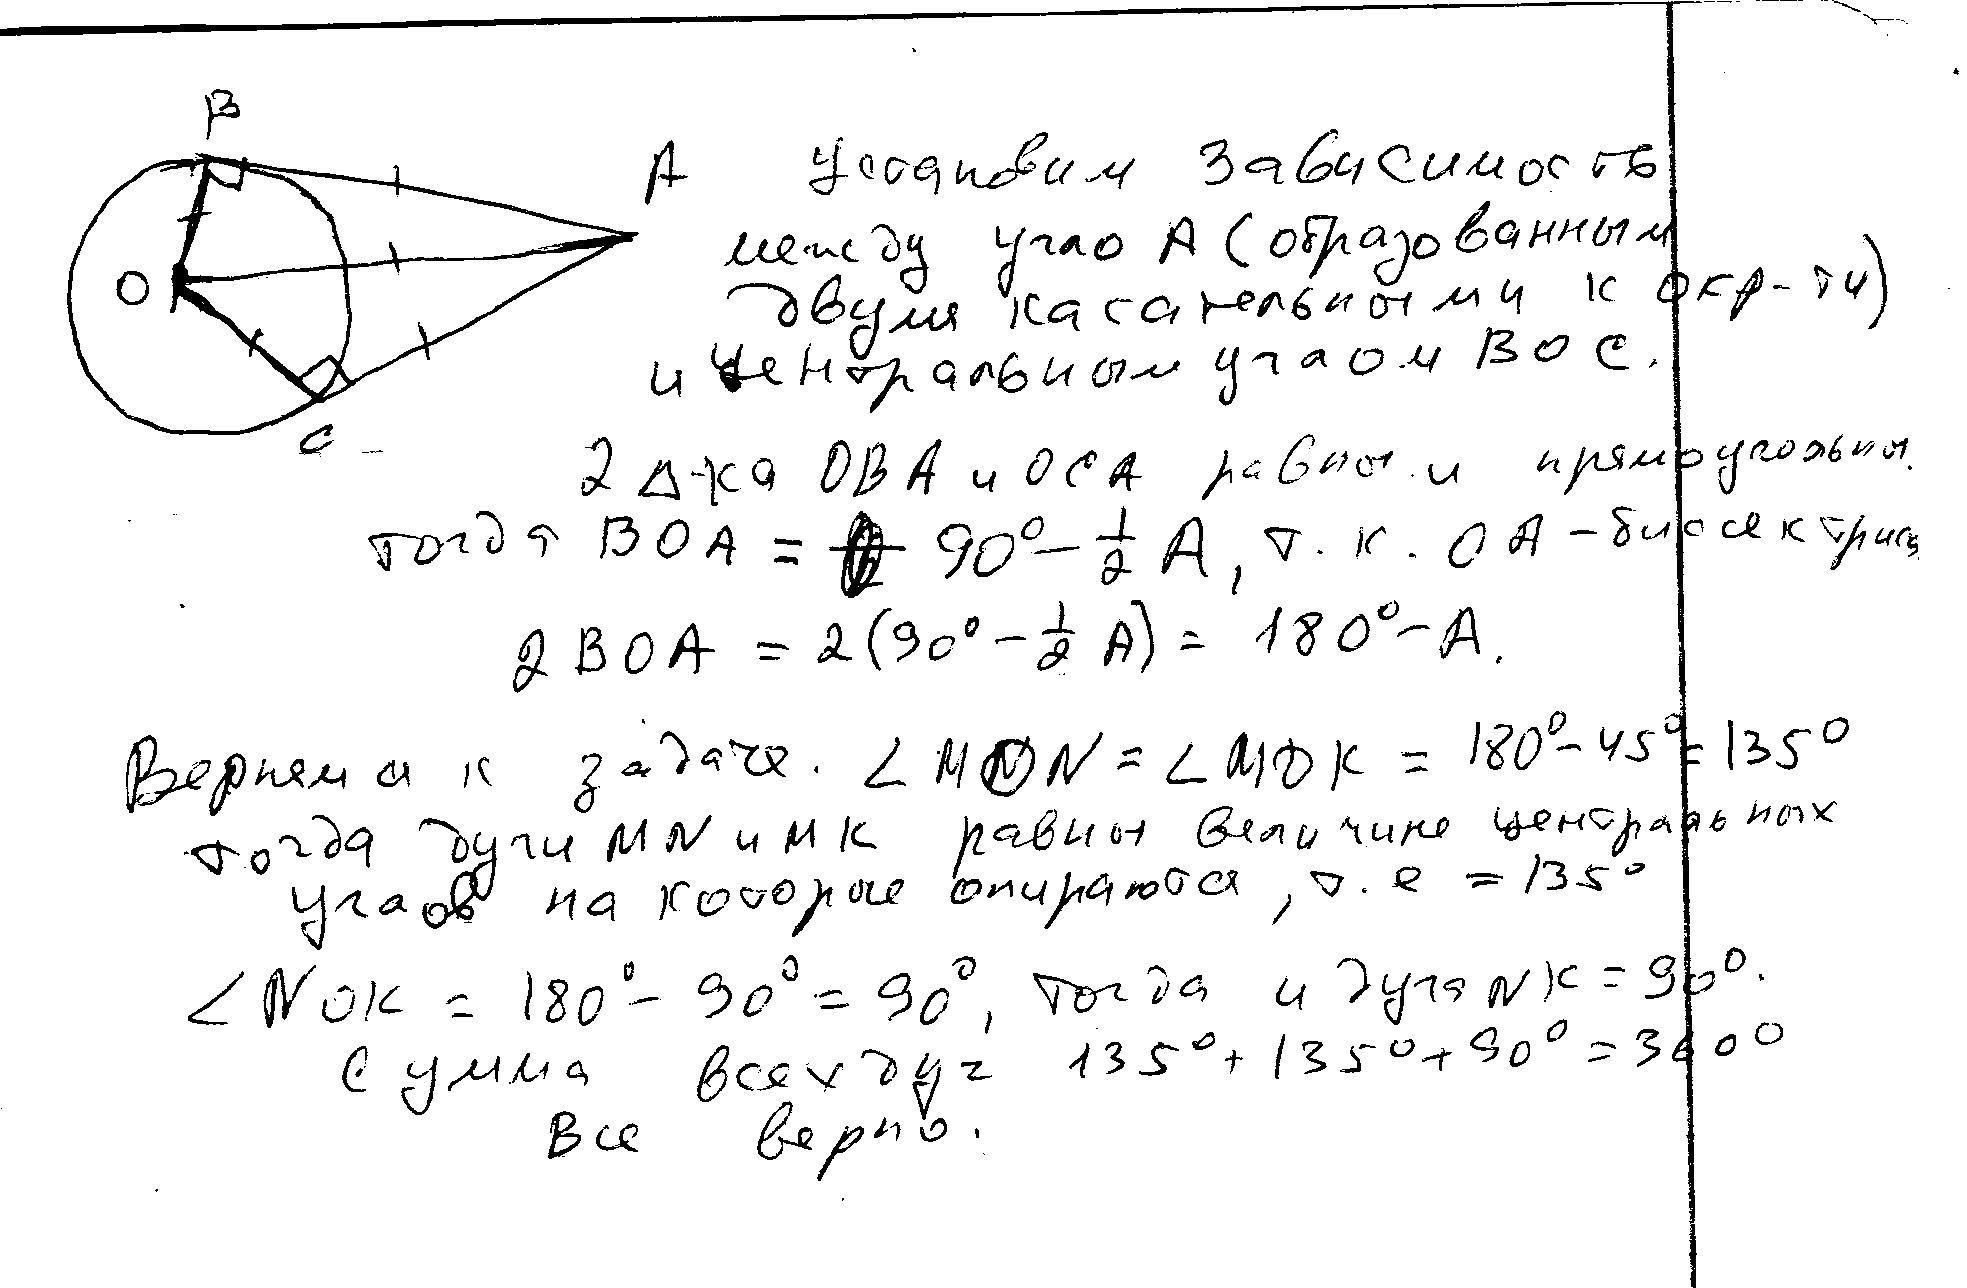 B
A
O
C
Установим зависимость
между угло A (образованным
двумя касательными к окр-ти)
и центральным углом BOC.
2 Δ-ка OBA и OCA равны и прямоугольны.
тогда BOA = 90° - 1/2 A, т.к. OA - биссектриса
2 BOA = 2(90° - 1/2 A) = 180° - A.
Вернемся к задаче. ∠MON = ∠MOK = 180° - 45° = 135°
тогда дуги MN и MK равны величине центральных
углов на которые опираются, т.е = 135°
∠NOK = 180° - 90° = 90°, тогда и дуга NK = 90°.
Сумма всех дуг 135° + 135° + 90° = 360°
Все верно.